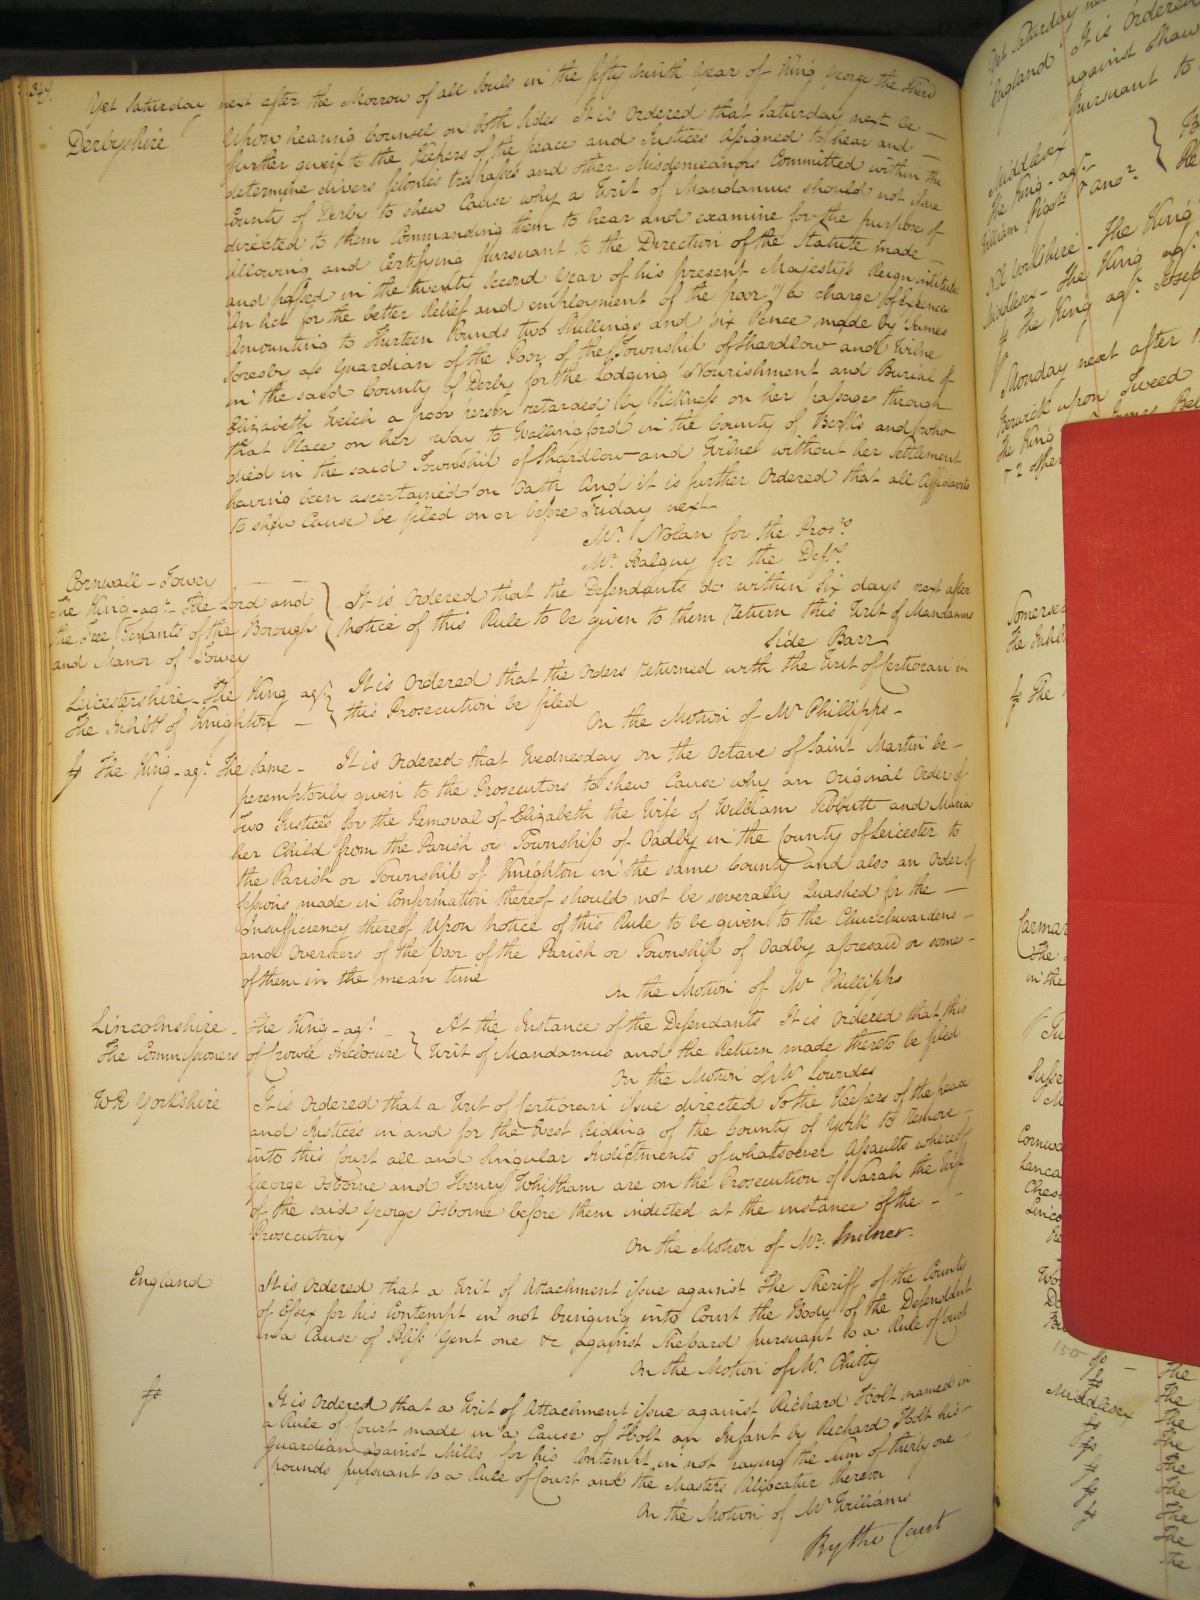 Yet Saturday next after the Morrow of all Souls in the fifty ninth Year of King George the Third
Derbyshire
Upon hearing Counsel on both sides It is Ordered that Saturday next be
further given to the Keepers of the peace and Justices Assigned to hear and
determine divers felonies trespasses and other Misdemeanors Committed within the
County of Derby to shew Cause why a Writ of Mandamus should not issue
directed to them Commanding them to hear and examine for the purpose of
allowing and Certifying pursuant to the Direction of the Statute made
and passed in the twenty second Year of his present Majesty's Reign intitled
An Act for the better Relief and employment of the poor a charge of Expences
Amounting to thirteen Pounds two Shillings and six Pence made by James
foresby as Guardian of the Poor of the Township of Shardlow and Wilne
in the said County of Derby for the Lodging Nourishment and Burial of
Elizabeth Welch a poor person retarded by Sickness on her passage through
that Place on her way to Wallingford in the County of Berks and who
died in the said Township of Shardlow and Wilne without her Settlement
having been ascertained on Oath And it is further Ordered that all Affidavits
to shew Cause be filed on or before Friday next
Mr. Nolan for the Pros.rs
Mr. Balguy for the Defts.
Cornwall - Fowey
The King - agt. The Lord and
the Free Tenants of the Borough
and Manor of Fowey
It is Ordered that the Defendants do within Six days next after
notice of this Rule to be given to them Return this Writ of Mandamus
Side Barr
Leicestershire - The King agt.
The Inhbts of Knighton
It is Ordered that the Orders returned with the Writ of Certiorari in
this Prosecution be filed
On the Motion of Mr Phillipps -
The King - agt. The Same - It is Ordered that Wednesday on the Octave of Saint Martin be -
peremptorily given to the Prosecutors to shew Cause why an Original Order of
Two Justices for the Removal of Elizabeth the Wife of William Tebbutt and Maria
her Child from the Parish or Township of Oadby in the County of Leicester to
the Parish or Township of Knighton in the same County and also an Order of
Sessions made in Confirmation thereof should not be severally Quashed for the -
Insufficiency thereof Upon notice of this Rule to be given to the Churchwardens -
and Overseers of the Poor of the Parish or Township of Oadby aforesaid or some -
of them in the mean time
On the Motion of Mr Phillipps
Lincolnshire - The King - agt. -
The Commissioners of Crowle Inclosure
At the Instance of the Defendants It is Ordered that this
Writ of Mandamus and the Return made thereto be filed
On the Motion of Mr Lowndes
WR Yorkshire
It is Ordered that a Writ of Certiorari issue directed To the Keepers of the peace
and Justices in and for the West Riding of the County of York to remove -
into this Court all and singular Indictments of whatsoever Assaults whereof
George Osborne and Henry Whitham are on the Prosecution of Sarah the Wife
of the said George Osborne before them indicted at the instance of the -
Prosecutrix
On the Motion of Mr. Milner.
England
It is Ordered that a Writ of Attachment issue against The Sheriff of the County
of Essex for his Contempt in not bringing into Court the Body of the Defendant
in a Cause of Bliss Gent one &c against Shepard pursuant to a Rule of Court
On the Motion of Mr. Chitty
It is Ordered that a Writ of Attachment issue against Richard Holt named in
a Rule of Court made in a Cause of Holt an Infant by Richard Holt his
Guardian against Mills for his Contempt in not paying the Sum of thirty one -
pounds pursuant to a Rule of Court and the Masters Allocatur thereon
On the Motion of Mr Williams
By the Court
Yet Saturday
England It is Ordered
against
pursuant to
Middlesex
The King - agt.
William Pigott & anor.
NR Yorkshire - The King
Middlesex - The King agt.
The King agt. Joseph
Monday next after
Berwick upon Tweed
The King
& 2 other
The
in the
150
Middlesex
The
The
The
The
The